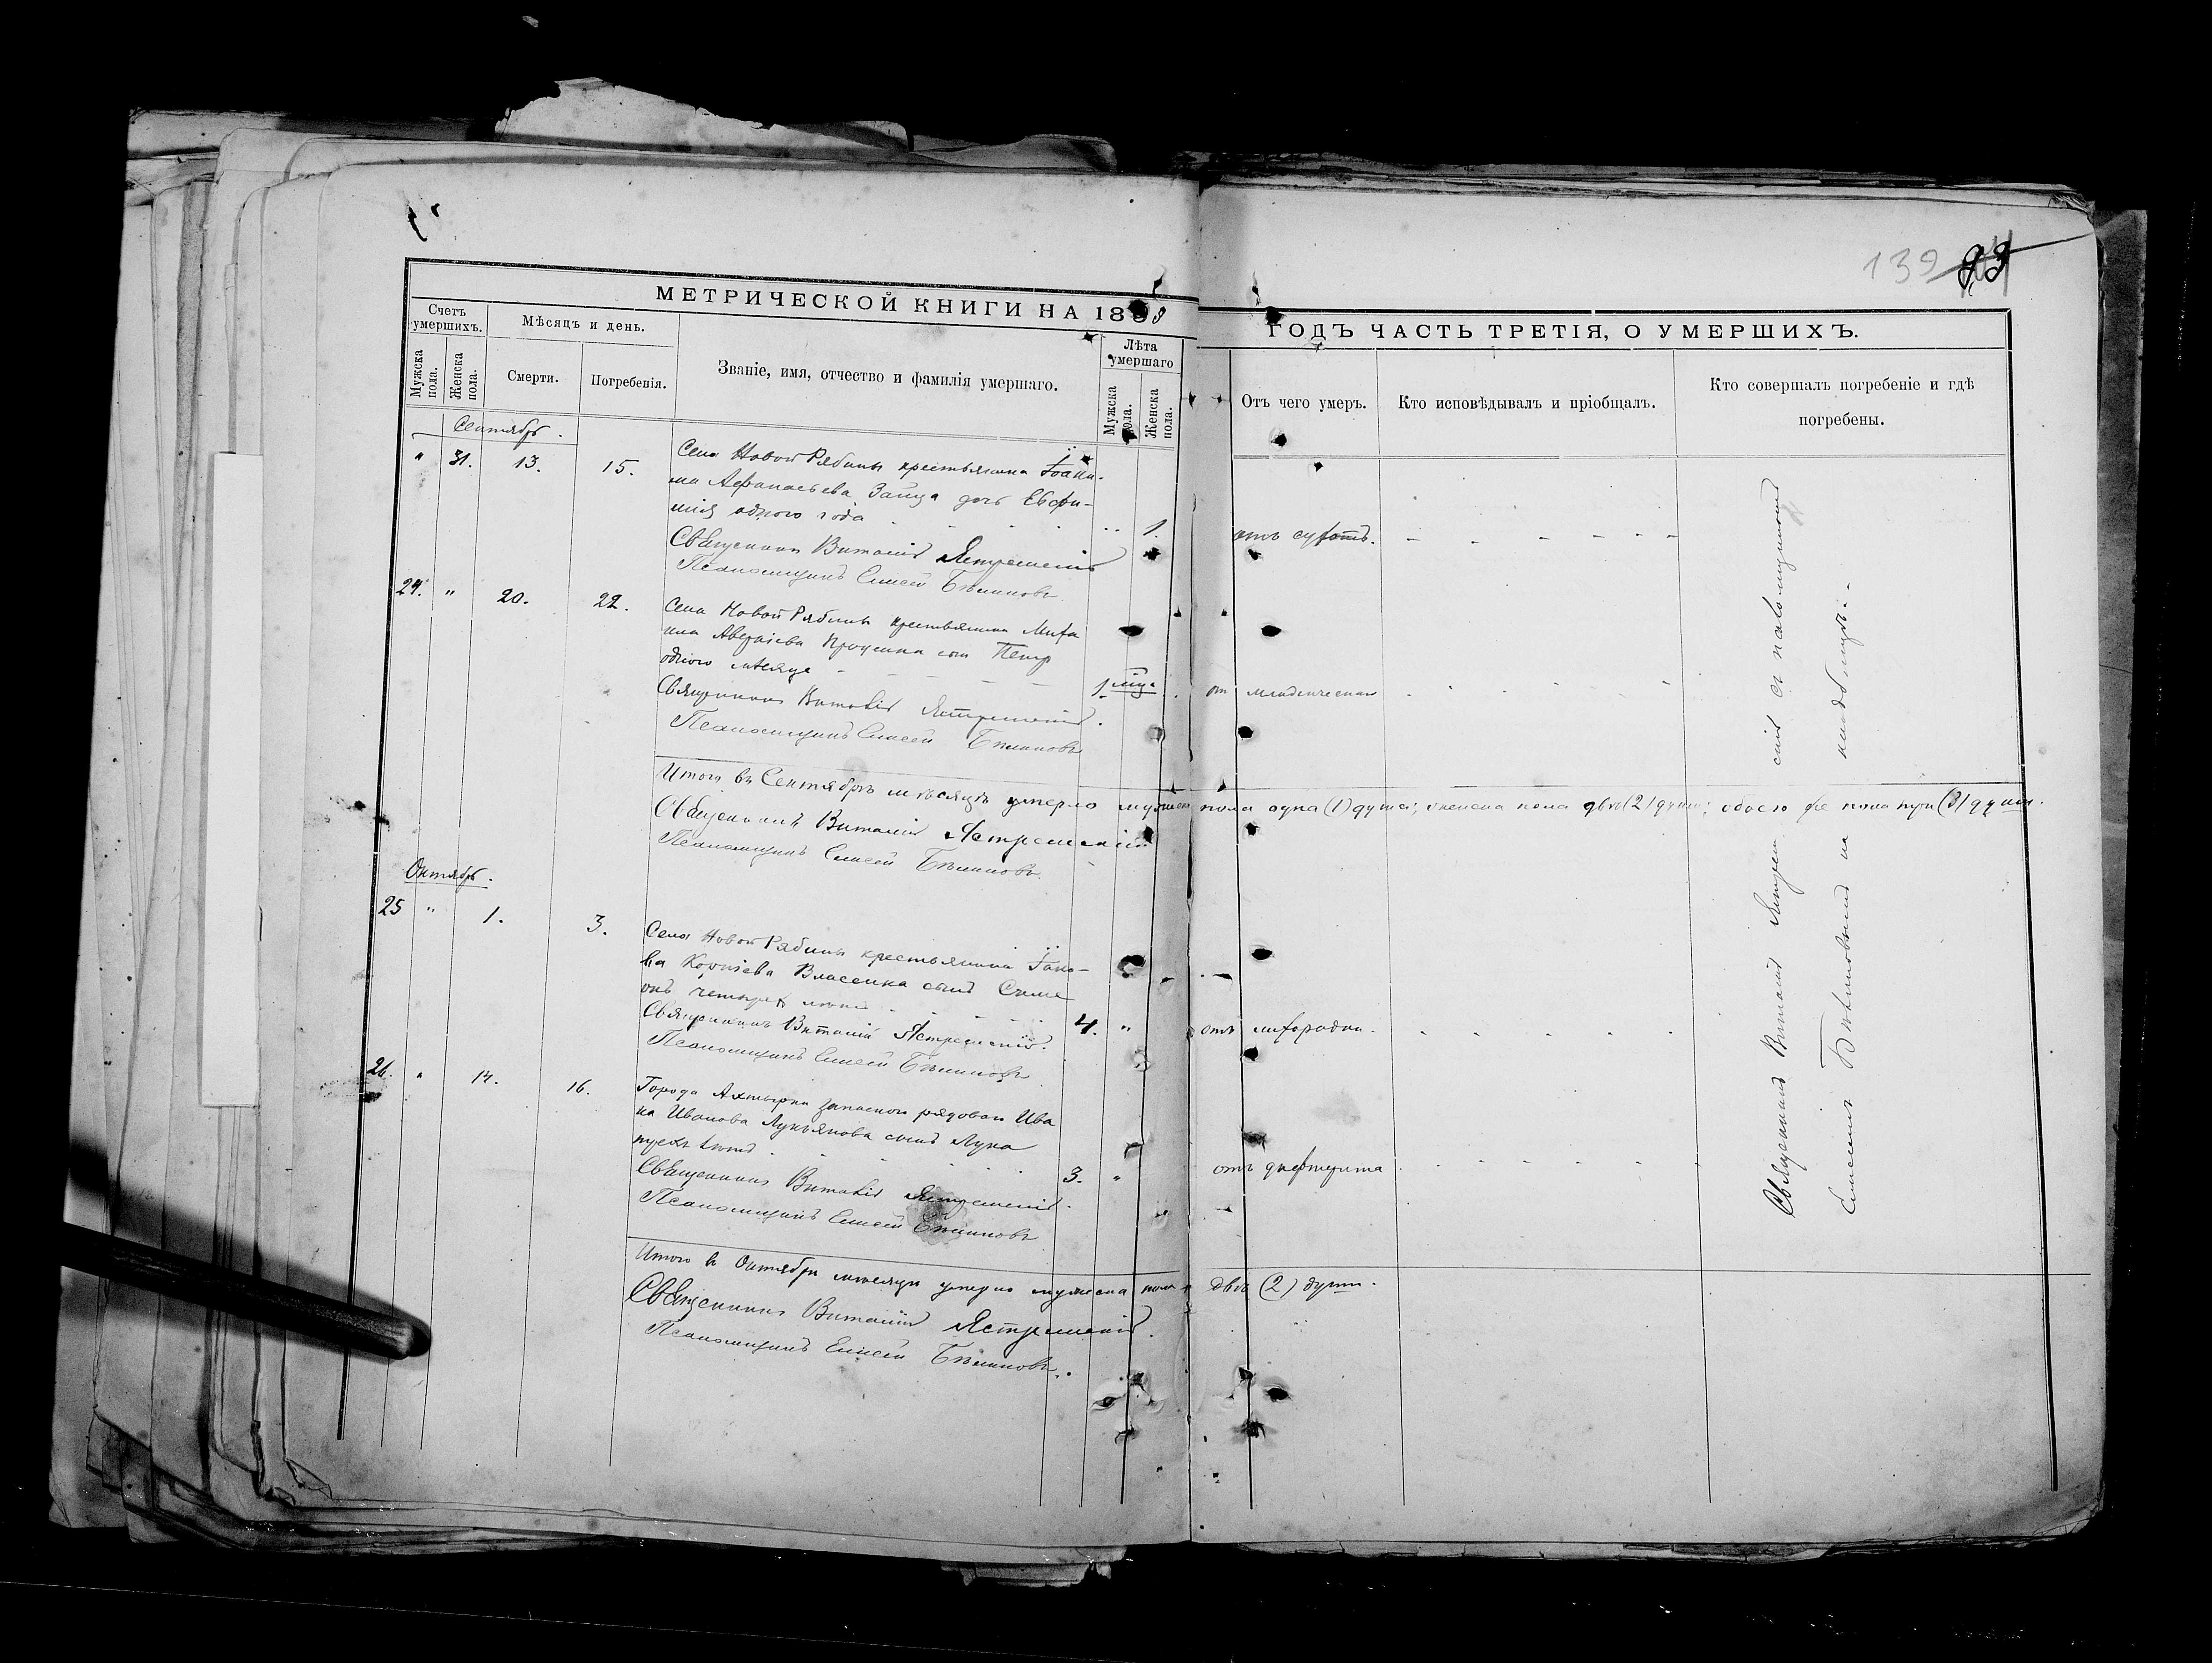 139 93
МЕТРИЧЕСКОЙ КНИГИ НА 1889 ГОДЪ ЧАСТЬ ТРЕТІЯ, О УМЕРШИХЪ.
Счетъ умершихъ.
Мужска пола.
Женска пола.
Мѣсяцъ и день.
Смерти.
Погребенія.
Званіе, имя, отчество и фамилія умершаго.
Лѣта умершаго
Мужска пола.
Женска пола.
Отъ чего умеръ.
Кто исповѣдывалъ и пріобщалъ.
Кто совершалъ погребеніе и гдѣ погребены.
Сентябрь.
" 31. 13. 15.
Села Новой Рябины крестьянина Іоаки-
ма Афанасьева Зайца дочь Евфи-
мія одного года 1. отъ
Священникъ Виталій Ястремскій
Псаломщикъ Елисей Бѣликовъ
24. " 20. 22.
Села Новой Рябины крестьянина Миха
ила сын Петр
одного мѣсяца 1. мца от младенческой
Священникъ Виталій Ястремскій.
Псаломщикъ Елисей Бѣликовъ
Итого въ Сентябрѣ мѣсяцѣ умерло мужска пола одна (1) душа; женска пола двѣ (2) души; обоего же пола три (3) души.
Священникъ Виталій Ястремскій
Псаломщикъ Елисей Бѣликовъ.
Октябрь.
25 " 1. 3.
Села Новой Рябины крестьянина Іако-
ва Корніева Власенка сынъ Симе
онъ четырех лѣтъ 4. " отъ лихорадки.
Священникъ Виталій Ястремскій.
Псаломщикъ Елисей Бѣликовъ
26. " 14. 16.
Города Ахтырки запасного рядового Ива
на Иванова Лукьянова сынъ Лука
трехъ лѣтъ 3. " отъ дифтерита
Священникъ Виталій Ястремскій.
Псаломщикъ Елисей Бѣликовъ
Итого въ Октябрѣ мѣсяцѣ умерло мужска пола двѣ (2) души.
Священникъ Виталій Ястремскій.
Псаломщикъ Елисей Бѣликовъ.
Священникъ Виталій Ястремскій съ псаломщикомъ
Елисеемъ Бѣликовымъ на кладбищѣ.